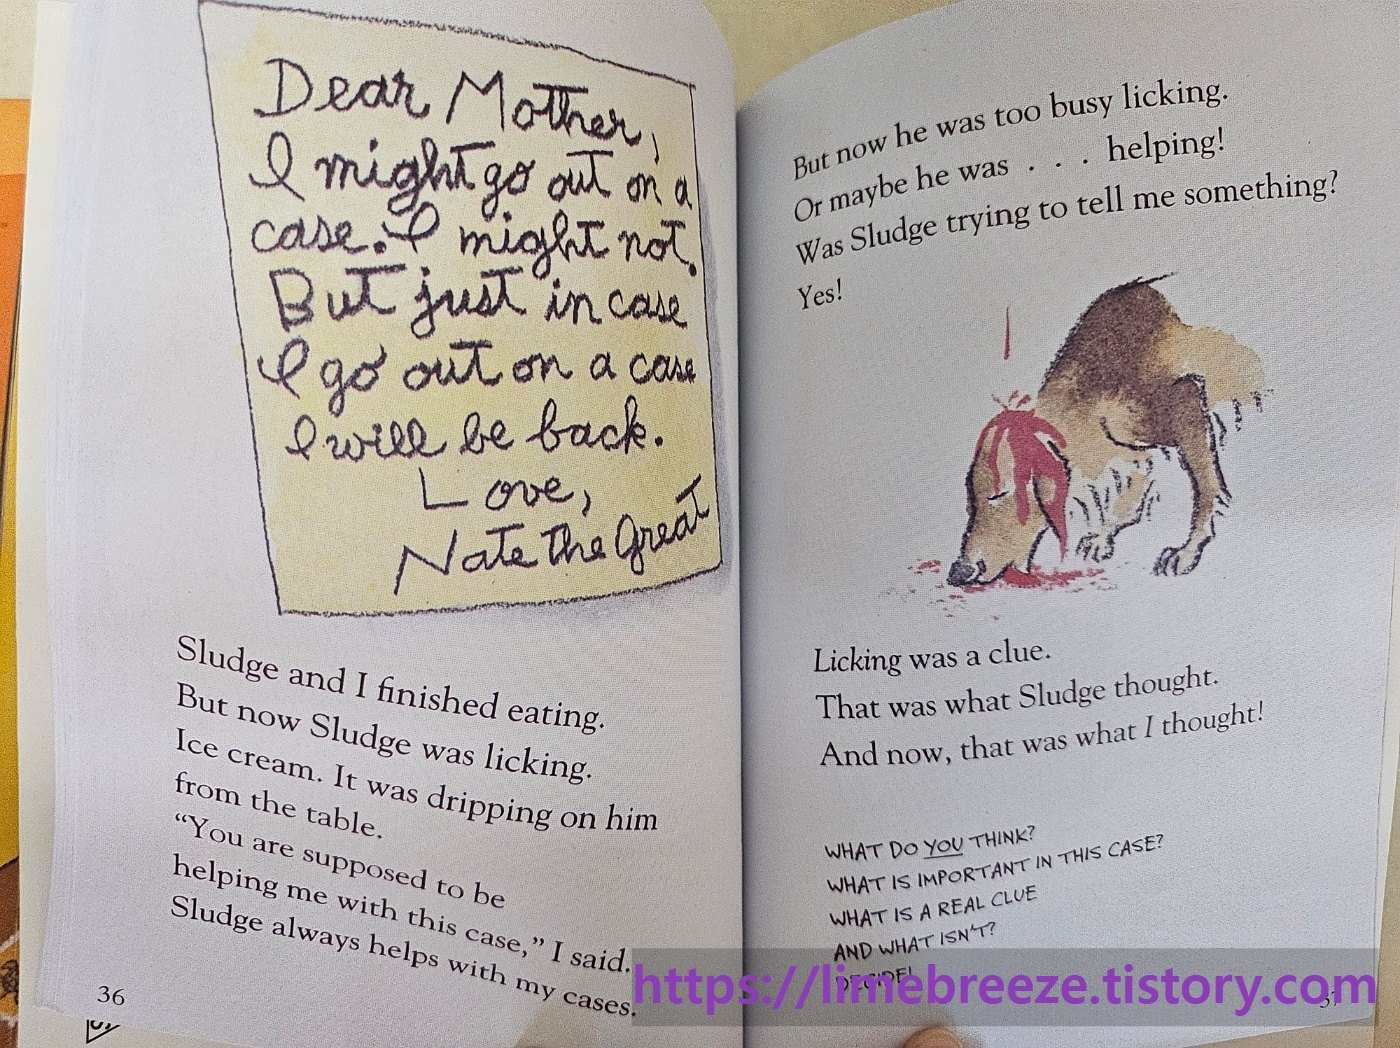 Dear Mother,
I might go out on a
case. I might not.
But just in case
I go out on a case
I will be back.
Love,
Nate the Great
Sludge and I finished eating.
But now Sludge was licking.
Ice cream. It was dripping on him
from the table.
“You are supposed to be
helping me with this case,” I said.
Sludge always helps with my cases.
36
But now he was too busy licking.
Or maybe he was . . . helping!
Was Sludge trying to tell me something?
Yes!
Licking was a clue.
That was what Sludge thought.
And now, that was what I thought!
WHAT DO YOU THINK?
WHAT IS IMPORTANT IN THIS CASE?
WHAT IS A REAL CLUE
AND WHAT ISN'T?
DECIDE!
37
https://limebreeze.tistory.com